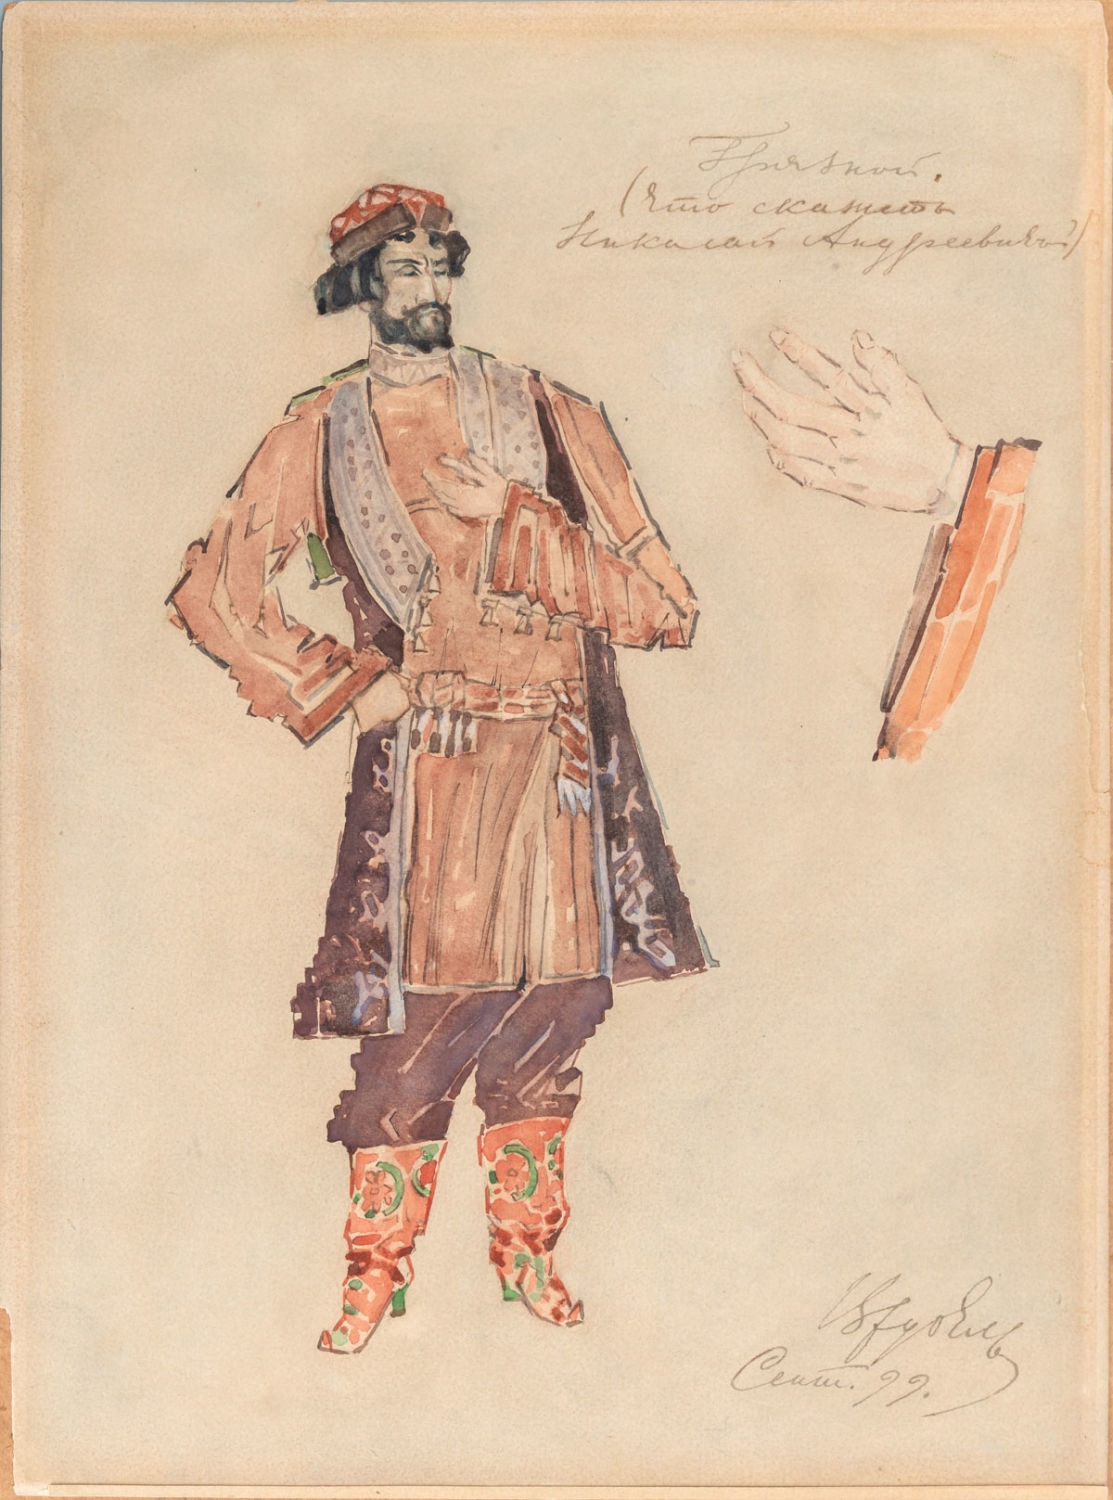 Грязной.
(Что скажетъ
Николай Андреевичъ?)
Врубель
Сент. 99.